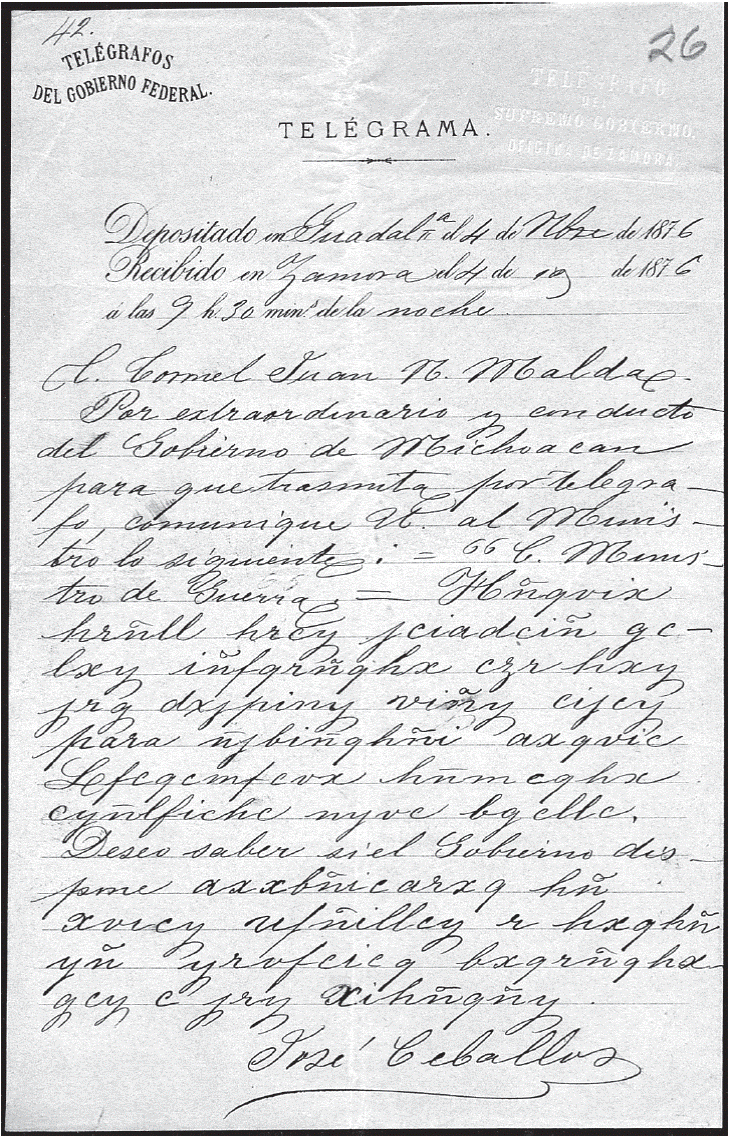 42.
26
TELÉGRAFOS
DEL GOBIERNO FEDERAL.
TELÉGRAFO
DEL
SUPREMO GOBIERNO.
OFICINA DE ZAMORA
TELÉGRAMA.
Depositado en Guadalª el 4 de Nbre de 1876
Recibido en Zamora el 4 de id de 1876
á las 9 h. 30 min.s de la noche.
C. Coronel Juan N. Malda
Por extraordinario y conducto
del Gobierno de Michoacan
para que trasmita por telegra-
fo, comunique U. al Minis-
tro lo siguiente: = "C. Minis-
tro de Guerra. = Hñqvix
hrñll hrcy jciadciñ gc-
lxy iñfqrñqhx czr hxy
jrg dxjpiny viñy cijcy
para ñjbiñqhñi axqvic
Lfcqcmfcvx hñmcqhx
cyñlfichc nyvc bgcllc.
Deseo saber si el Gobierno dis-
pone axxbñicarxq hñ
xvicy ufñillcy r hxqhñ
yñ yrofcicq bxqrñqhx-
qcy c jry xihñqñy.
José Ceballos